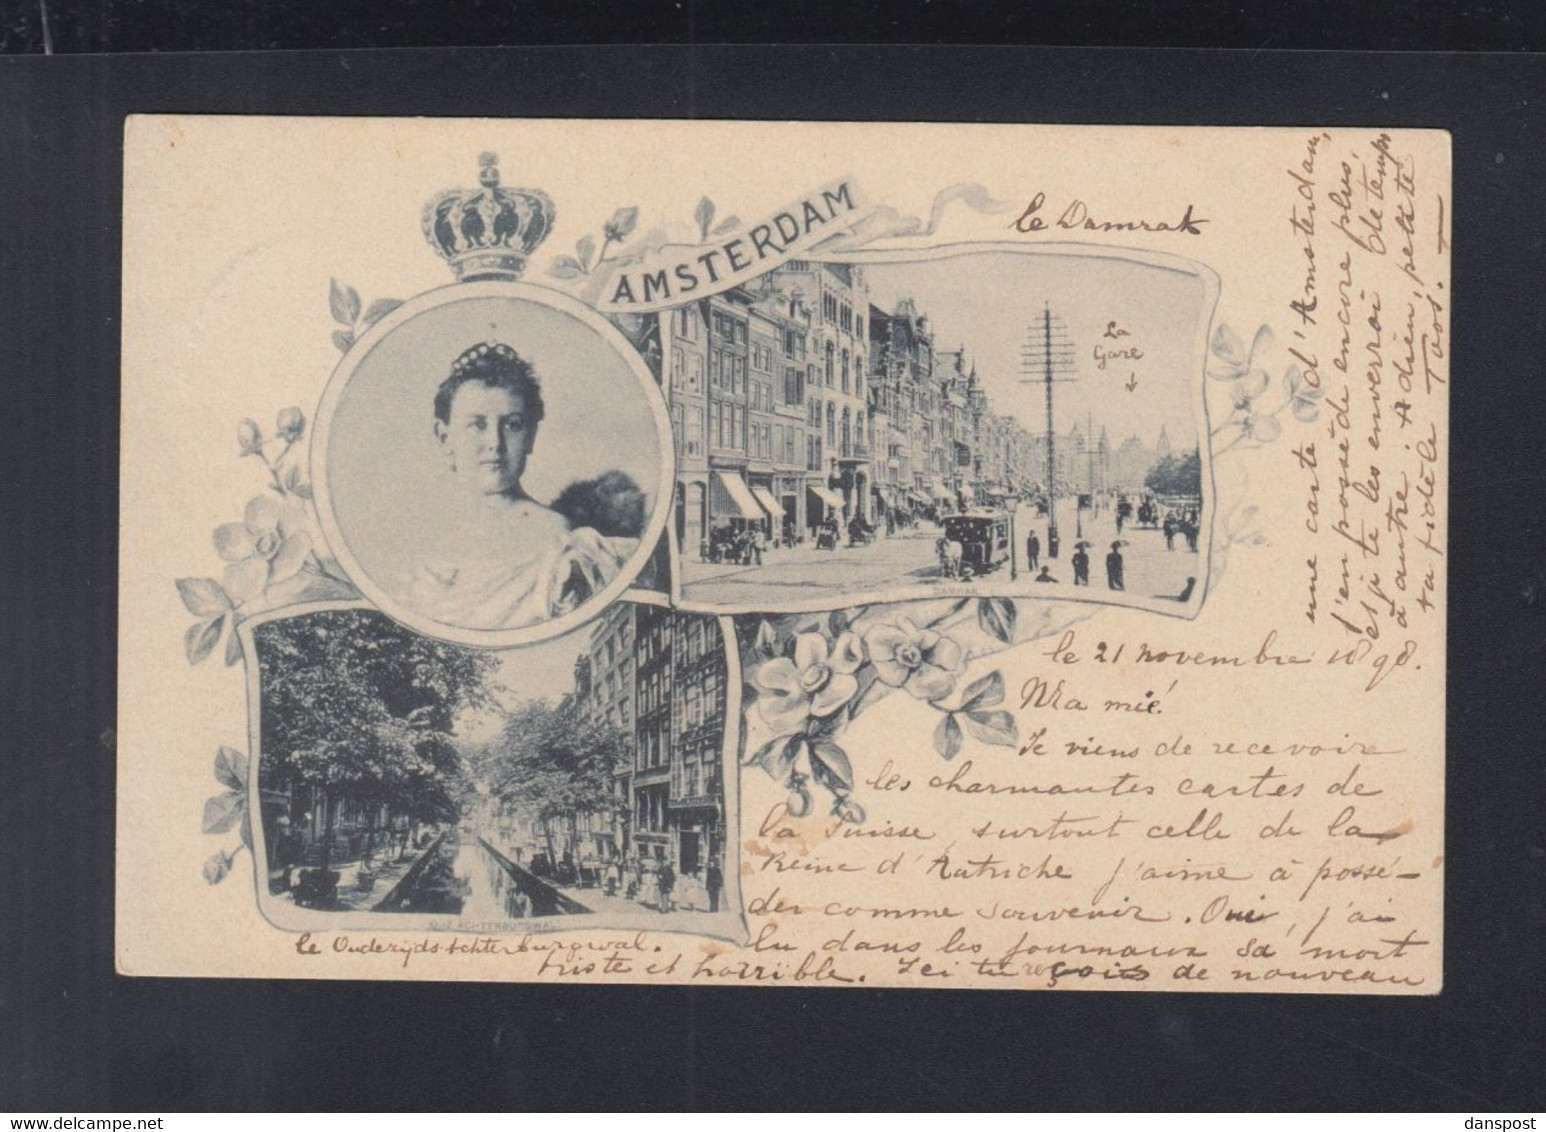 AMSTERDAM
le Damrak
La
Gare
DAMRAK
O.Z. ACHTERBURGWAL
le Ouderijds Achterburgwal.
le 21 novembre 1898.
Ma mie!
Je viens de recevoire
les charmantes cartes de
la Suisse, surtout celle de la
Reine d'Autriche j'aime à possé-
der comme souvenir. Oui, j'ai
lu dans les journaux sa mort
triste et horrible. Ici tu reçois de nouveau
une carte d'Amsterdam,
j'en possède encore plus,
et je te les enverrai de temps
à autre. Adieu, petite
ta fidèle Toos.
danspost